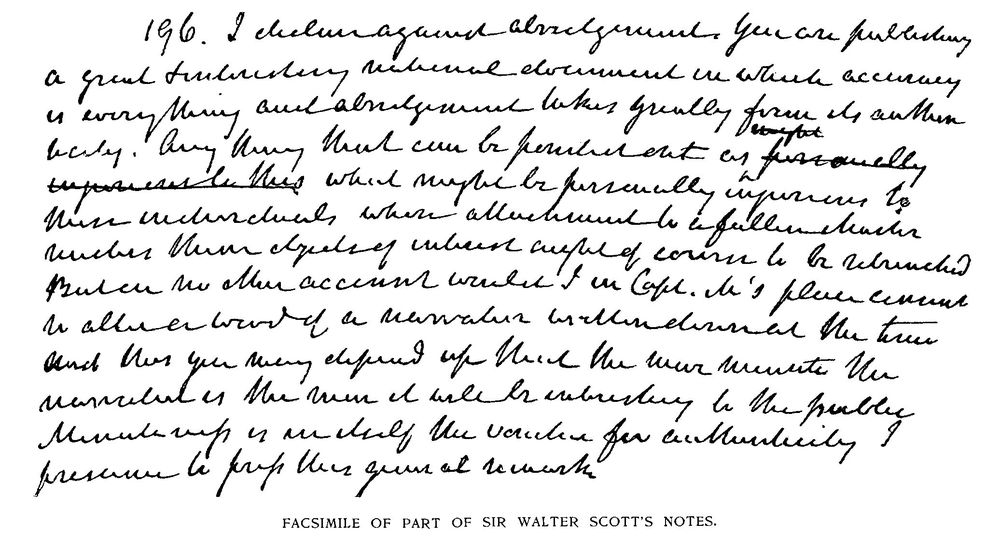 196. I declare against abridgement. You are publishing
a great & interesting national document in which accuracy
is everything and abridgement takes greatly from its authen
ticity. Any thing that can be pointed out as might personally
injurious to this what might be personally injurious to
those individuals whose attachment to a fallen Master
makes them objects of interest ought of course to be retrenched
But on no other account would I in Capt. M's place consent
to alter a word of a narrative written down at the time
And this you may depend up that the more minute the
narrative is the more it will be interesting to the public
Minuteness is in itself the voucher for authenticity I
presume to press this general remark
FACSIMILE OF PART OF SIR WALTER SCOTT'S NOTES.